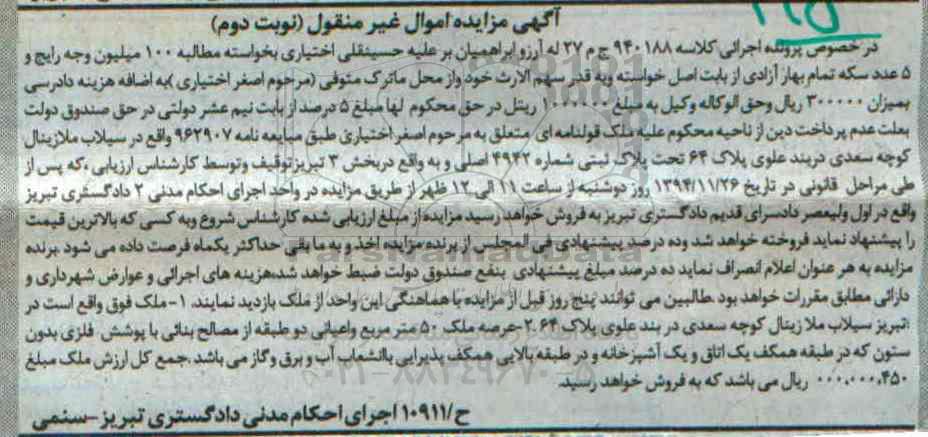 ۱۱۵
آگهی مزایده اموال غیر منقول (نوبت دوم)
در خصوص پرونده اجرائی کلاسه ۹۴۰۱۸۸ ج م ۲۷ له آرزو ابراهیمیان بر علیه حسینقلی اختیاری بخواسته مطالبه ۱۰۰ میلیون وجه رایج و
۵ عدد سکه تمام بهار آزادی از بابت اصل خواسته وبه قدر سهم الارث خود واز محل ماترک متوفی (مرحوم اصغر اختیاری )به اضافه هزینه دادرسی
بمیزان ۳۰۰۰۰۰ ریال وحق الوکاله وکیل به مبلغ ۱۰۰۰۰۰۰ ریال در حق محکوم لها مبلغ ۵ درصد از بابت نیم عشر دولتی در حق صندوق دولت
بعلت عدم پرداخت دین از ناحیه محکوم علیه ملک قولنامه ای متعلق به مرحوم اصغر اختیاری طبق مبایعه نامه ۹۶۲۹۰۷ واقع در سیلاب ملازینال
کوچه سعدی دربند علوی پلاک ۶۴ تحت پلاک ثبتی شماره ۴۹۴۲ اصلی و به واقع دربخش ۳ تبریز توقیف وتوسط کارشناس ارزیابی ،که پس از
طی مراحل قانونی در تاریخ ۱۳۹۴/۱۱/۲۶ روز دوشنبه از ساعت ۱۱ الی ۱۲ ظهر از طریق مزایده در واحد اجرای احکام مدنی ۲ دادگستری تبریز
واقع در اول ولیعصر دادسرای قدیم دادگستری تبریز به فروش خواهد رسید مزایده از مبلغ ارزیابی شده کارشناس شروع وبه کسی که بالاترین قیمت
را پیشنهاد نماید فروخته خواهد شد وده درصد پیشنهادی فی المجلس از برنده مزایده اخذ و به ما بقی حداکثر یکماه فرصت داده می شود برنده
مزایده به هر عنوان اعلام انصراف نماید ده درصد مبلغ پیشنهادی بنفع صندوق دولت ضبط خواهد شد،هزینه های اجرائی و عوارض شهرداری و
دارائی مطابق مقررات خواهد بود .طالبین می توانند پنج روز قبل از مزایده با هماهنگی این واحد از ملک بازدید نمایند. ۱-ملک فوق واقع است در
:تبریز سیلاب ملا زینال کوچه سعدی در بند علوی پلاک ۶۴ .۲-عرصه ملک ۵۰ متر مربع واعیانی دو طبقه از مصالح بنائی با پوشش فلزی بدون
ستون که در طبقه همکف یک اتاق و یک آشپزخانه و در طبقه بالایی همکف پذیرایی باانشعاب آب و برق وگاز می باشد .جمع کل ارزش ملک مبلغ
۴۵۰،۰۰۰،۰۰۰ ریال می باشد که به فروش خواهد رسید.
ح/۱۰۹۱۱ اجرای احکام مدنی دادگستری تبریز-سنمی
ParsNamadData
۰۲۱-۸۸۳۴۹۶۷۰-۵